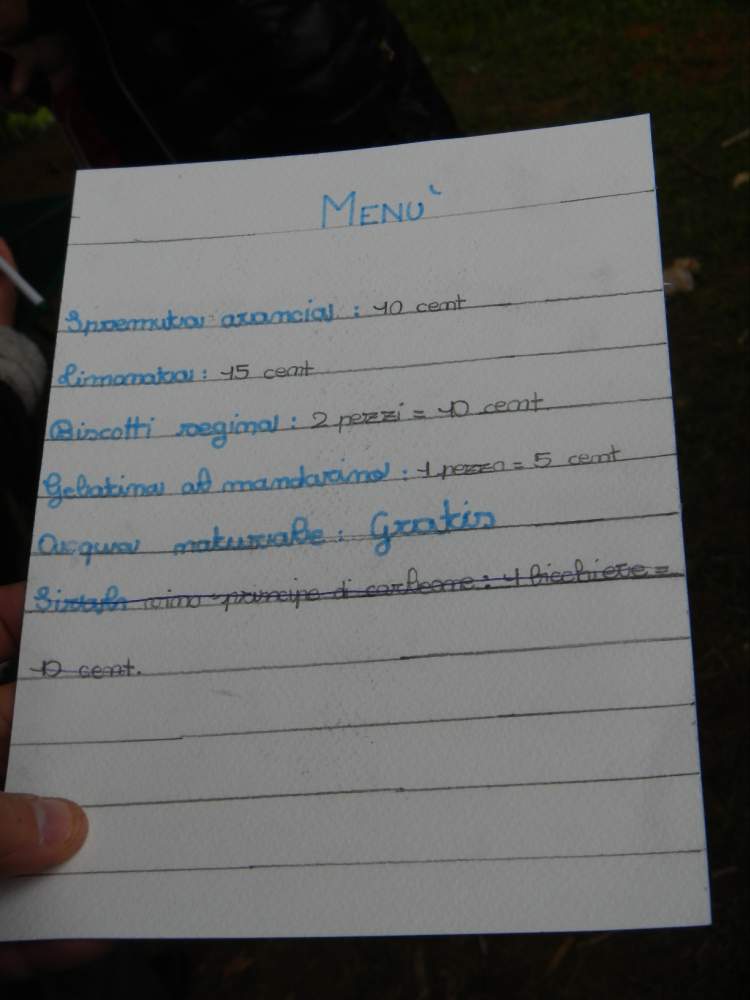 MENU`
Spremuta arancia : 10 cent
Limonata : 15 cent
Biscotti regina : 2 pezzi = 10 cent
Gelatina al mandarino : 1 pezzo = 5 cent
Acqua naturale : Gratis
vino principe di corleone : 1 bicchiere =
10 cent.